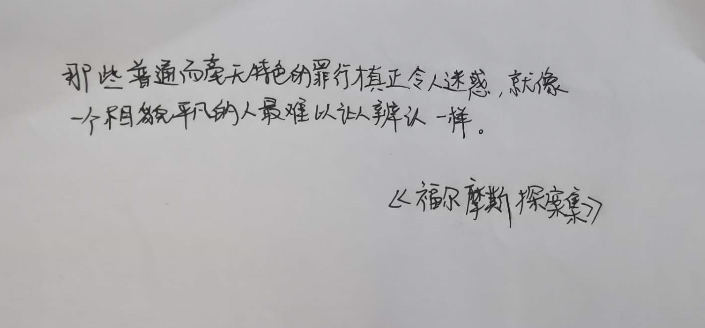 那些普通而毫无特色的罪行才真正令人迷惑，就像
一个相貌平凡的人最难以让人辨认一样。
《福尔摩斯探案集》